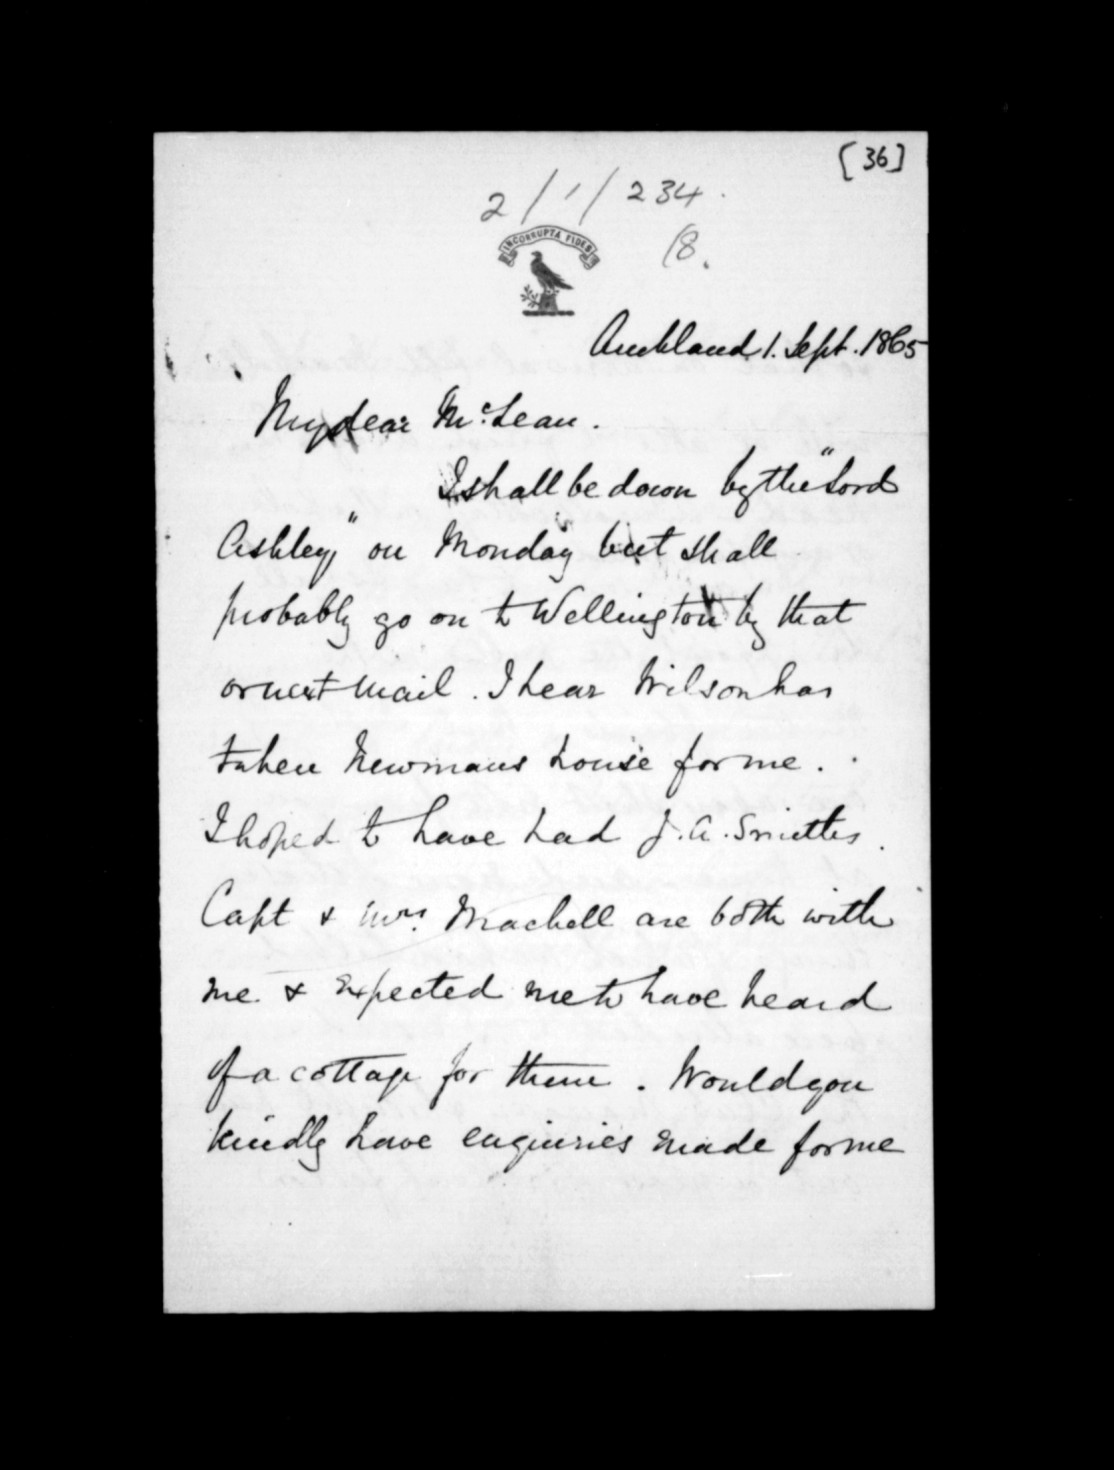 [36]
2/1/234.
18.
INCORRUPTA FIDES
Auckland 1. Sept. 1865
My dear McLean.
I shall be down by the "Lord
Ashley," on Monday but shall
probably go on to Wellington by that
or next mail. I hear Wilson has
taken Newmans house for me.
I hoped to have had J. A. Smiths.
Capt & Mrs. Machell are both with
me & expected me to have heard
of a cottage for them. Would you
kindly have enquiries made for me